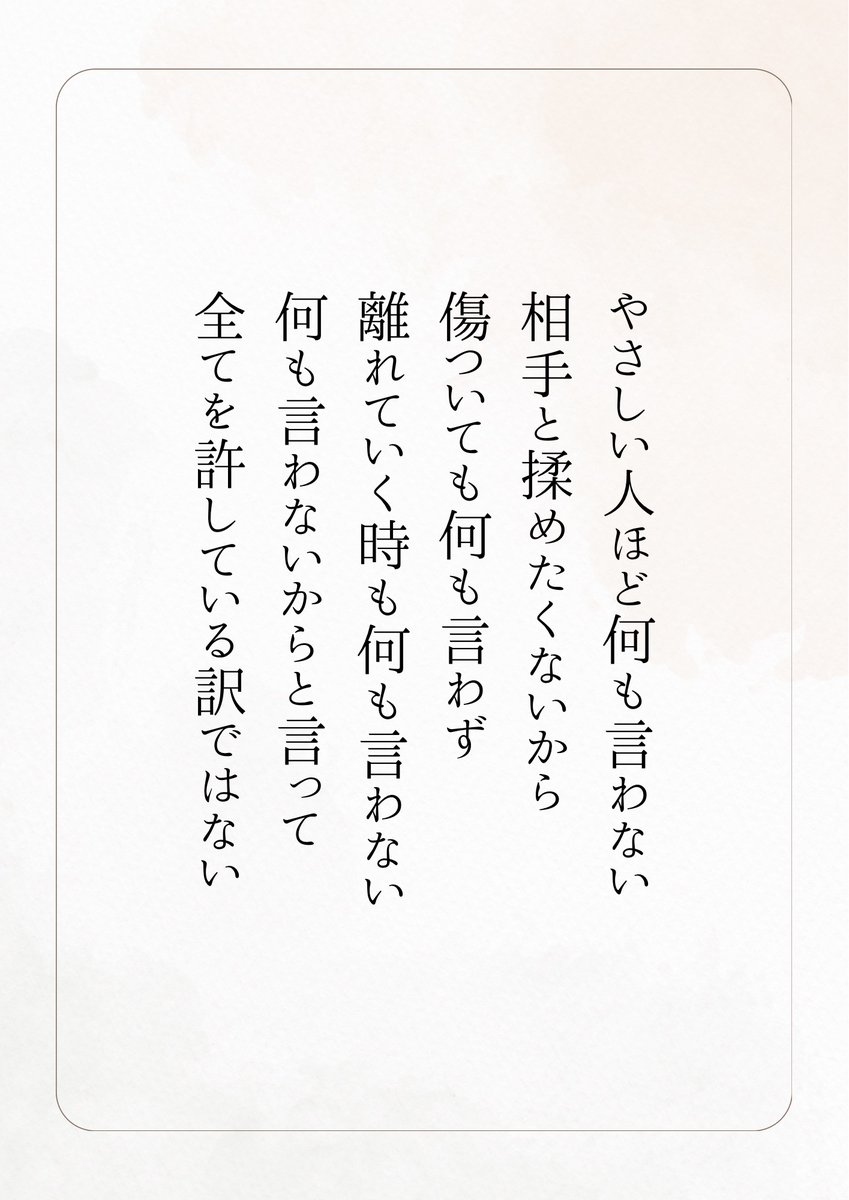 やさしい人ほど何も言わない
相手と揉めたくないから
傷ついても何も言わず
離れていく時も何も言わない
何も言わないからと言って
全てを許している訳ではない